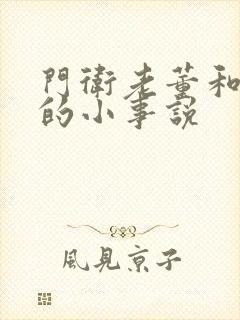 門衛老董和
的小事說
風見京子